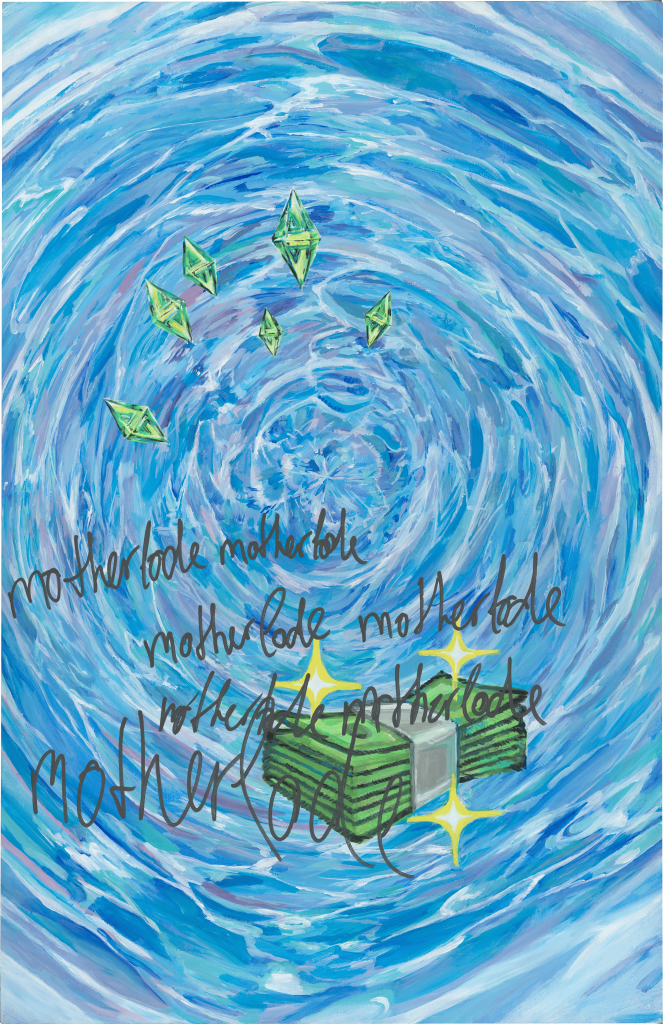 motherlode motherlode
motherlode motherlode
motherlode motherlode
motherlode